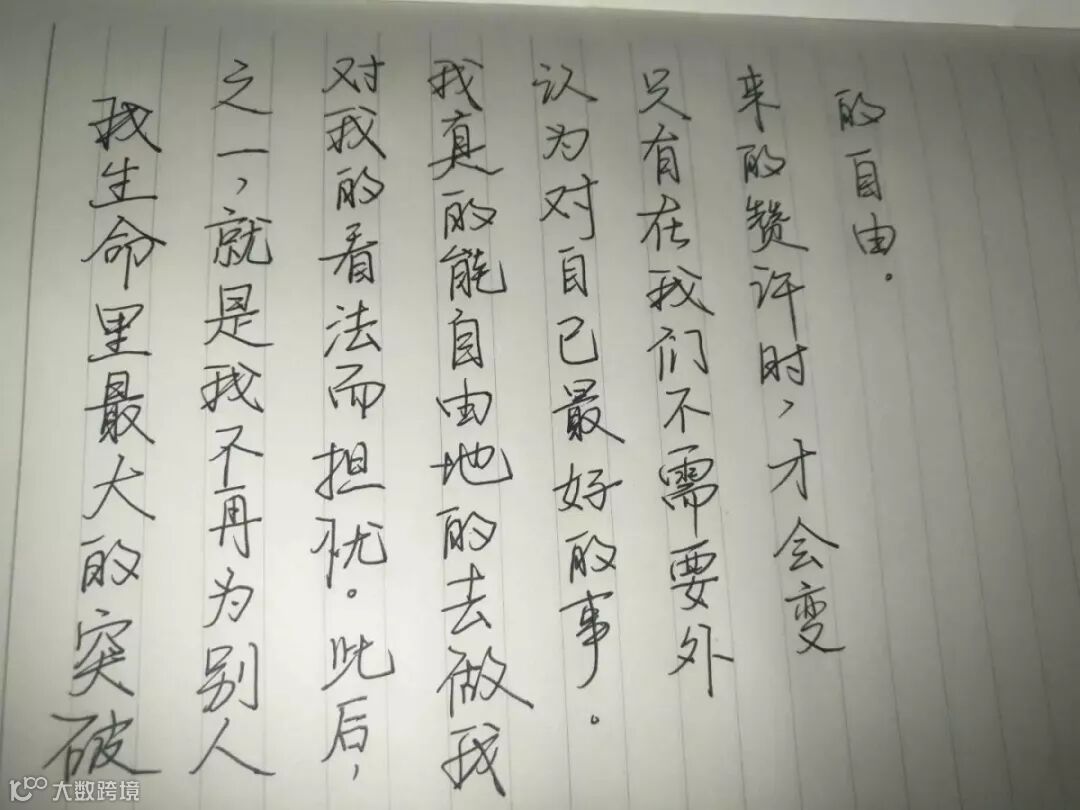 我生命里最大的突破
之一，就是我不再为别人
对我的看法而担忧。此后，
我真的能自由地的去做我
认为对自己最好的事。
只有在我们不需要外
来的赞许时，才会变
的自由。
大数跨境